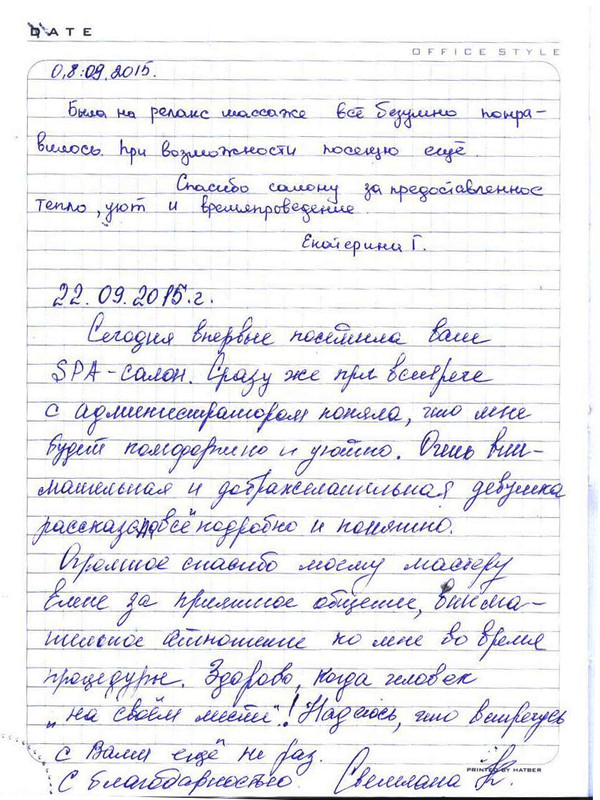 DATE
OFFICE STYLE
08.09.2015.
Была на релакс массаже всё безумно понра-
вилось. При возможности посещу ещё.
Спасибо салону за предоставленное
тепло, уют и времяпроведение.
Екатерина Г.
22.09.2015.г.
Сегодня впервые посетила ваш
SPA-салон. Сразу же при встрече
с администратором поняла, что мне
будет комфортно и уютно. Очень вни-
мательная и доброжелательная девушка
рассказала "всё" подробно и понятно.
Огромное спасибо моему мастеру
Елене за приятное общение, внима-
тельное отношение ко мне во время
процедуры. Здорово, когда человек
"на своём месте"! Надеюсь, что встречусь
с Вами ещё не раз.
PRINTED BY HATBER
С благодарностью Светлана К.